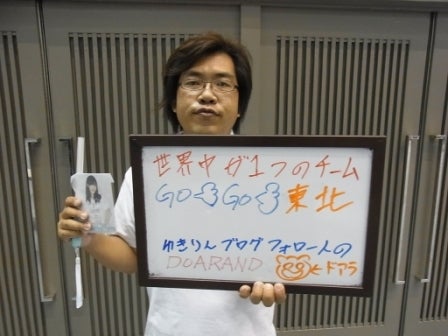 世界中が1つのチーム
GO GO 東北
ゆきりんブログフォロートの
DOARAND ヒドアラ